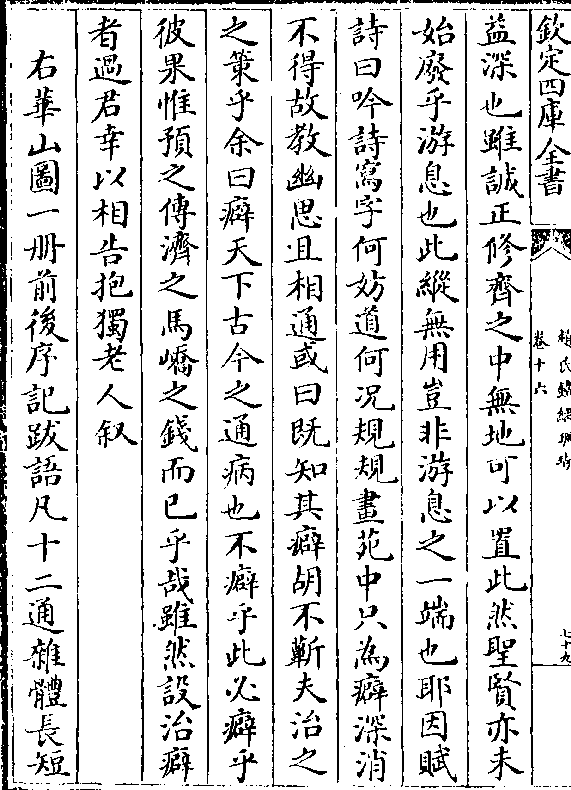 欽定四庫全書
趙氏鐵網珊瑚
卷十六
七十九
益深也雖誠正修齊之中無地可以置此然聖賢亦未
始廢乎游息也此縱無用豈非游息之一端也耶因賦
詩曰吟詩寫字何妨道何况規規畫苑中只為癖深消
不得故教幽思且相通或曰既知其癖胡不蘄夫治之
之策乎余曰癖天下古今之通病也不癖乎此必癖乎
彼果惟預之傳濟之馬嶠之錢而已乎哉雖然設治癖
者遇君幸以相告抱獨老人叙
右華山圖一册前後序記跋語凡十二通雜體長短